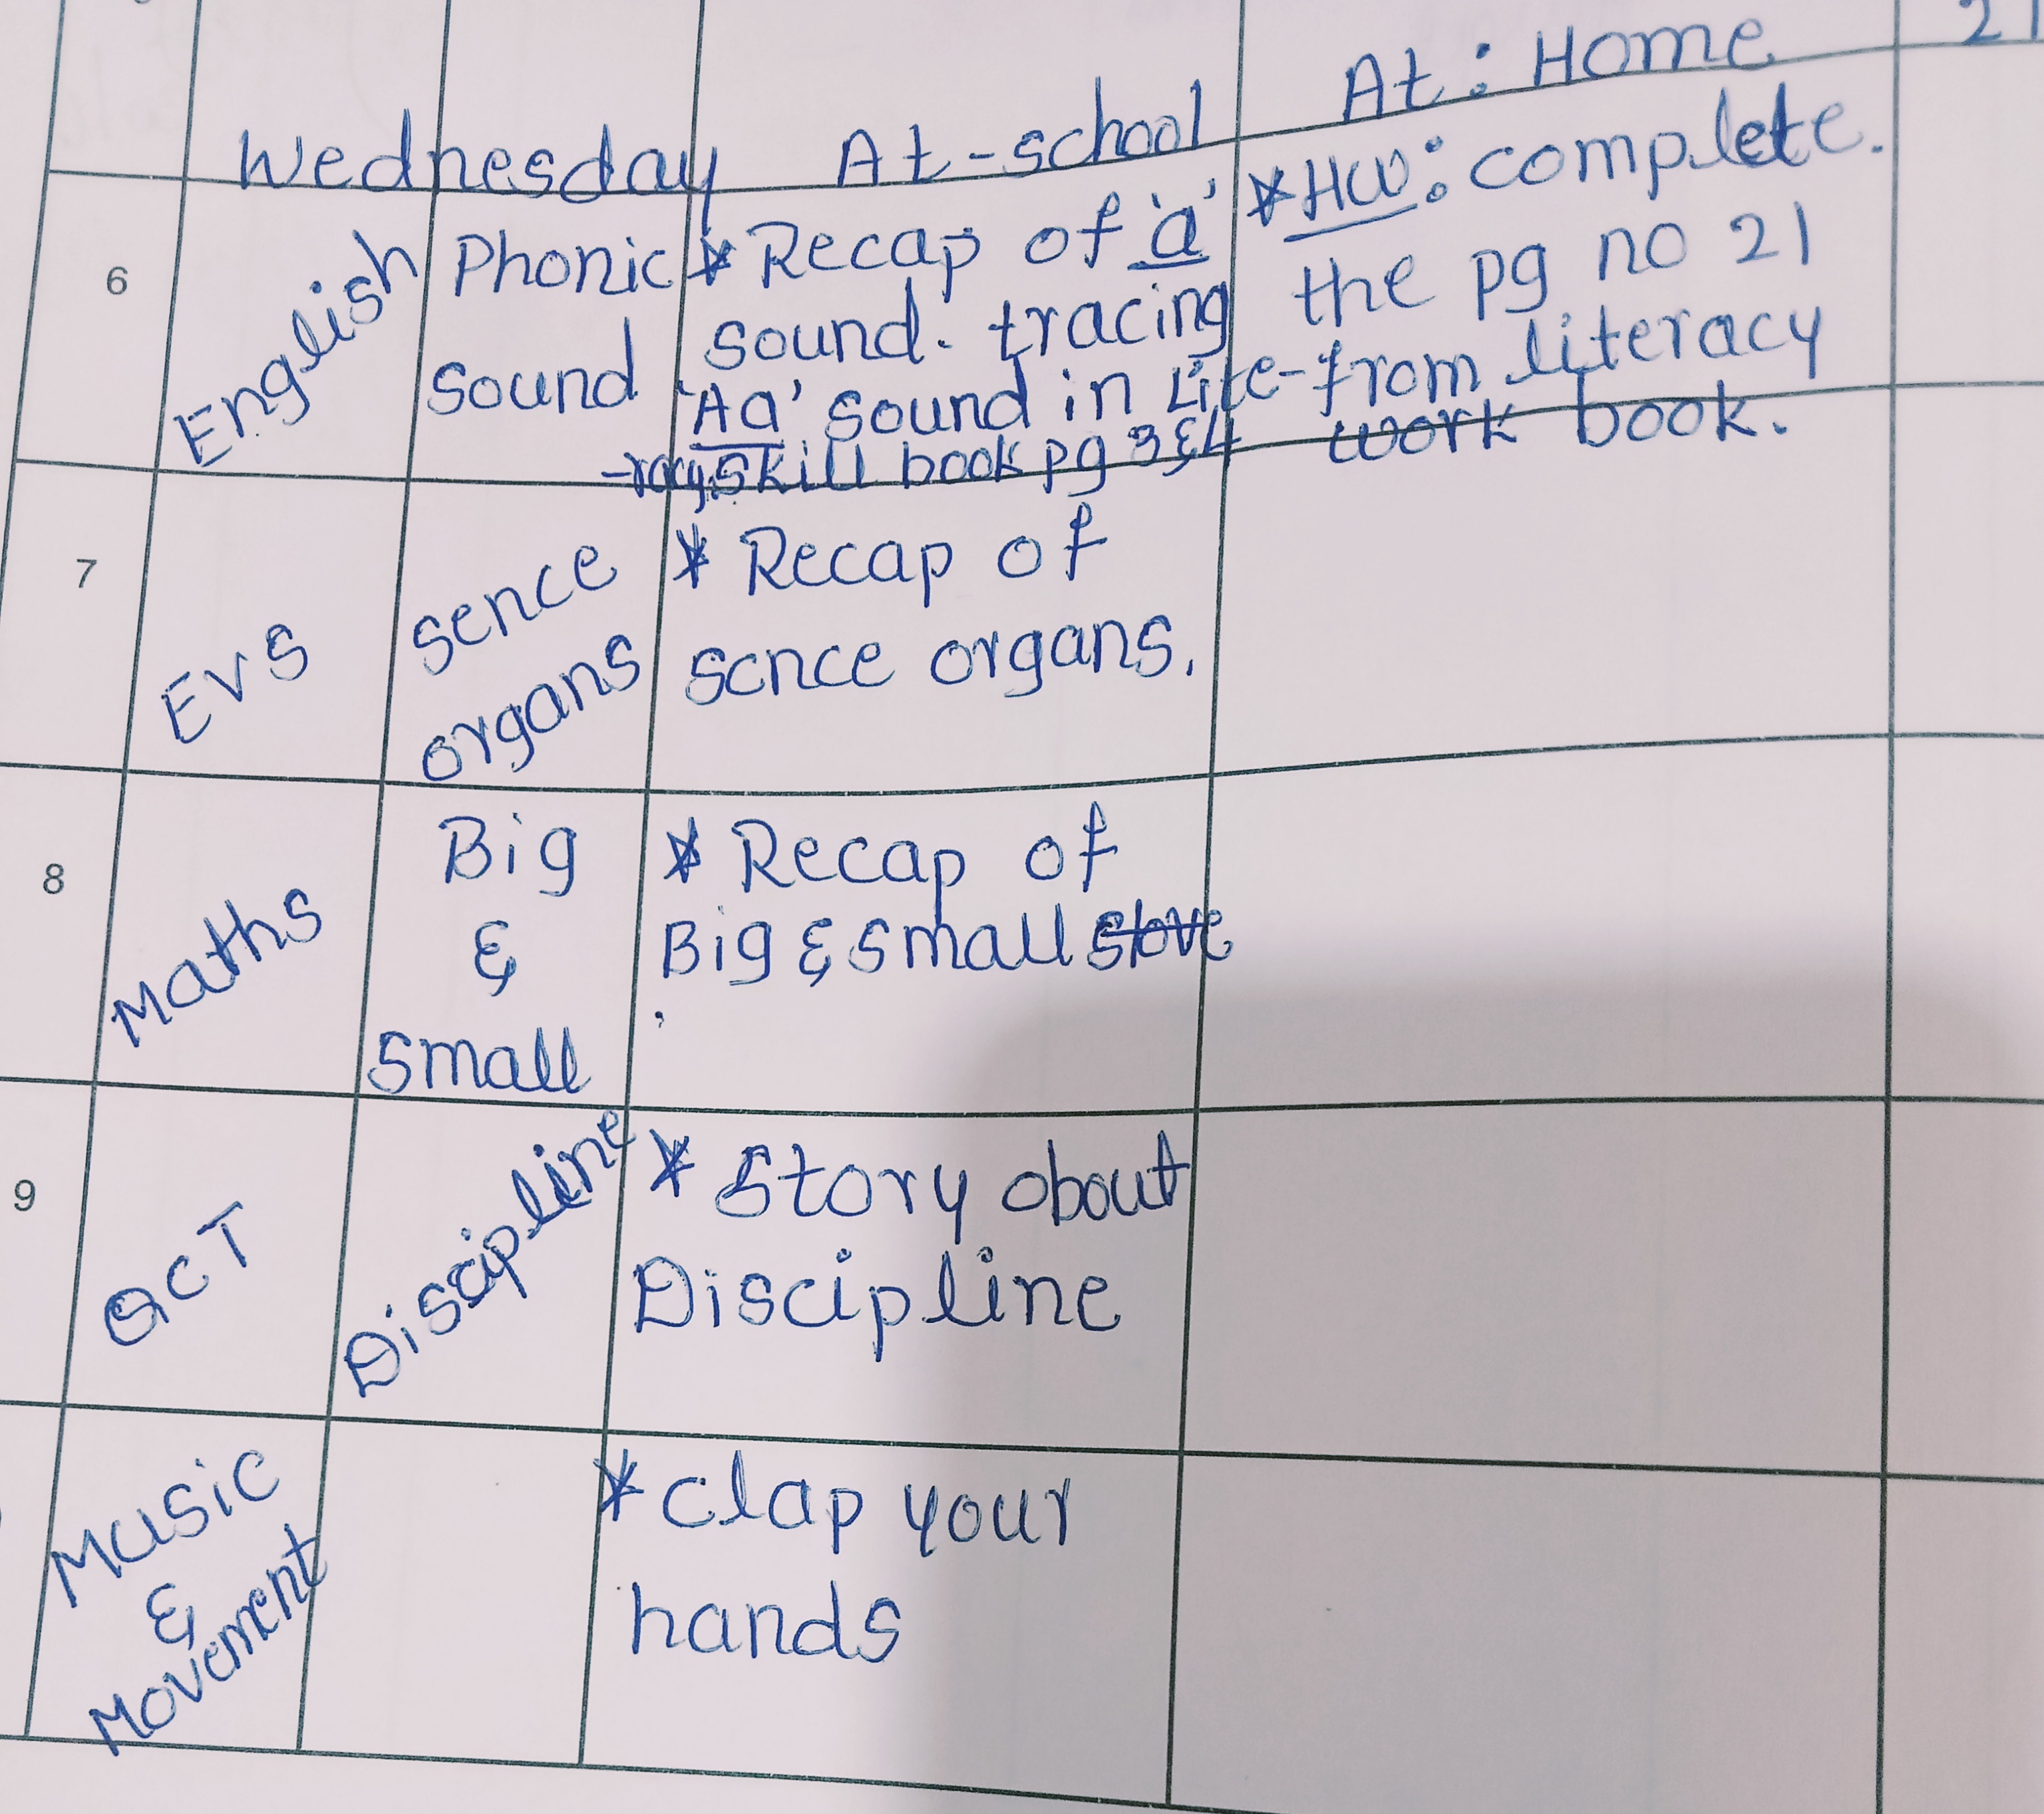 21
Wednesday At-school At: Home
6 English Phonic Sound
* Recap of 'a'
sound. tracing
'Aa' sound in Lite-
-racy skill book pg 3&4
* HW: complete.
the pg no 21
from literacy
work book.
7 EVS sence organs
* Recap of
sence organs.
8 Maths Big & small
* Recap of
Big & small
9 GCT Discipline
* Story obout
Discipline
Music & Movement
* Clap your
hands